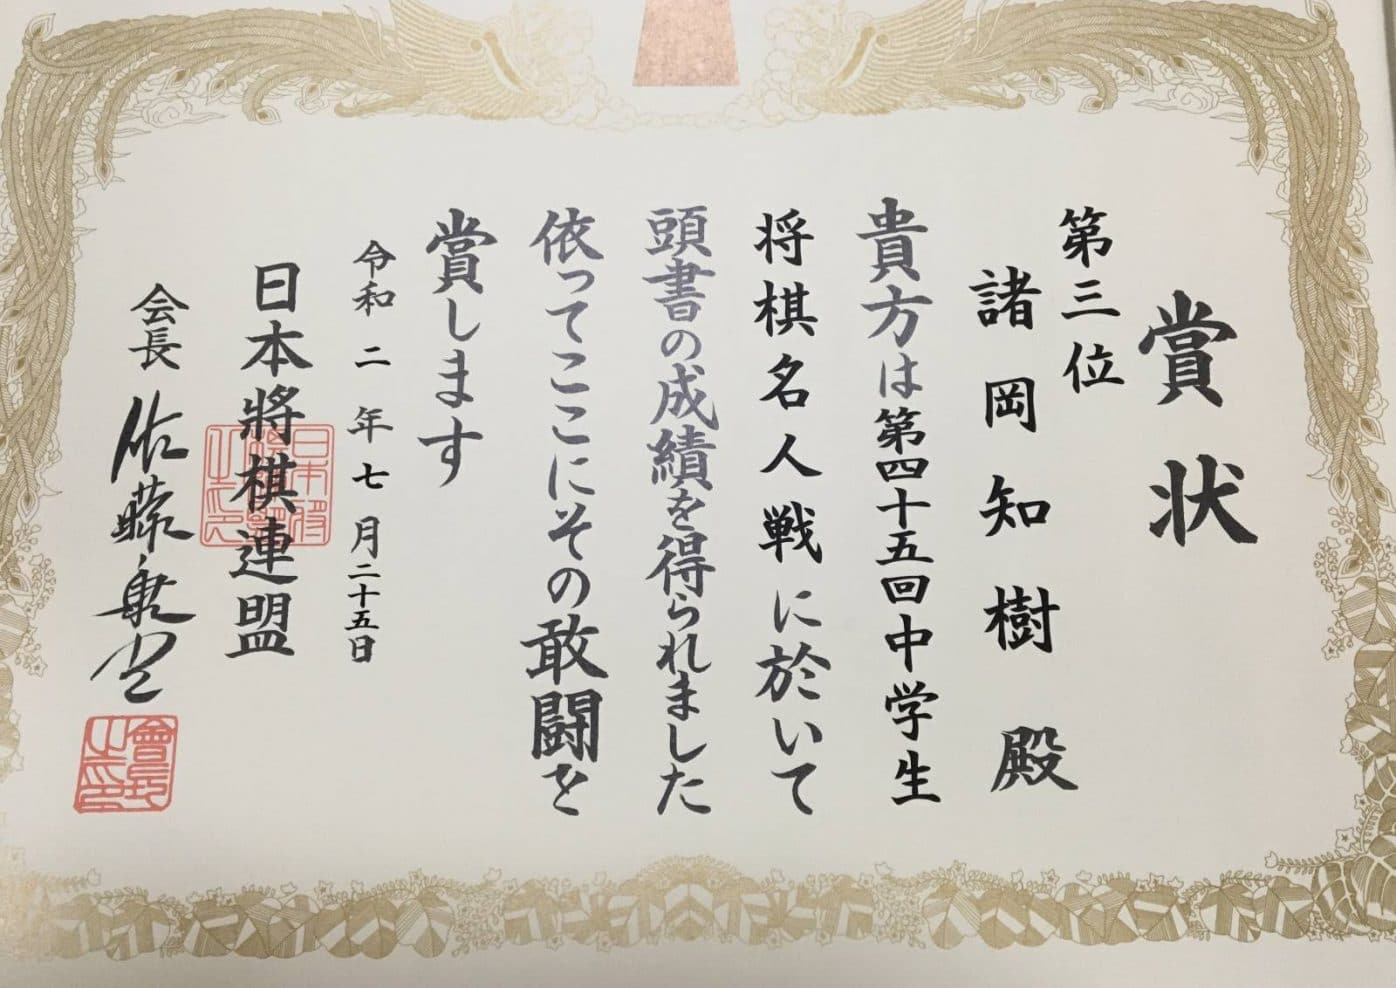 賞状
第三位
諸岡知樹殿
貴方は第四十五回中学生
将棋名人戦に於いて
頭書の成績を得られました
依ってここにその敢闘を
賞します
令和二年七月二十五日
日本將棋連盟
会長 佐藤康光
會長之印